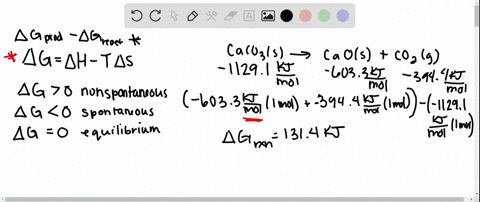 ΔG prod - ΔG react *
* ΔG = ΔH - TΔS
ΔG > 0 nonspontaneous
ΔG < 0 spontaneous
ΔG = 0 equilibrium
CaCO3(s) → CaO(s) + CO2(g)
-1129.1 kJ/mol -603.3 kJ/mol -394.4 kJ/mol
(-603.3 kJ/mol (1mol) + -394.4 kJ/mol (1mol)) - (-1129.1 kJ/mol (1mol)
ΔG rxn = 131.4 KJ